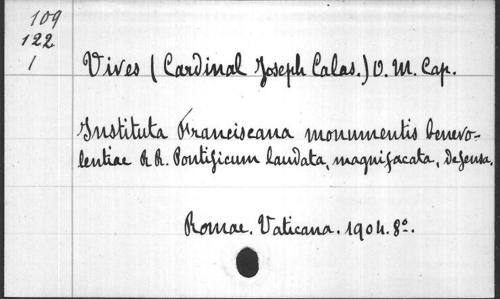 109
122
1
Vives (Cardinal Joseph Calas.) O. M. Cap.
Instituta Franciscana monumentis benevo-
lentiae RR. Pontificum laudata, magnifacata, defensa.
Romae. Vaticana. 1904. 8º.